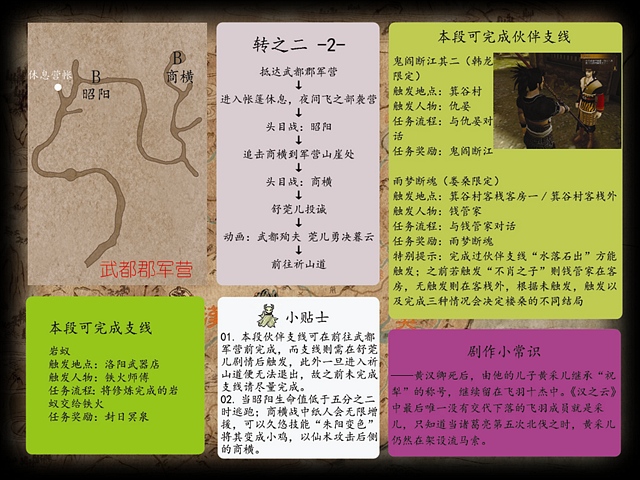 休息营帐
B
昭阳
B
商横
武都郡军营
转之二 -2-
抵达武都郡军营
进入帐篷休息，夜间飞之部袭营
头目战：昭阳
追击商横到军营山崖处
头目战：商横
舒莞儿投诚
动画：武都殉夫 莞儿勇决暮云
前往祈山道
本段可完成伙伴支线
鬼阎断江其二（韩龙
限定）
触发地点：箕谷村
触发人物：仇晏
任务流程：与仇晏对
话
任务奖励：鬼阎断江
雨梦断魂（娄桑限定）
触发地点：箕谷村客栈客房一/箕谷村客栈外
触发人物：钱管家
任务流程：与钱管家对话
任务奖励：雨梦断魂
特别提示：完成过伙伴支线“水落石出”方能
触发；之前若触发“不肖之子”则钱管家在客
房，无触发则在客栈外，根据未触发，触发以
及完成三种情况会决定楼桑的不同结局
本段可完成支线
岩蚁
触发地点：洛阳武器店
触发人物：铁火师傅
任务流程：将修炼完成的岩
蚁交给铁火
任务奖励：封日冥泉
小贴士
01. 本段伙伴支线可在前往武都
军营前完成，而支线则需在舒莞
儿剧情后触发，此外一旦进入祈
山道便无法退出，故之前未完成
支线请尽量完成。
02. 当昭阳生命值低于五分之二
时逃跑；商横战中纸人会无限增
援，可以久悠技能“朱阳变色”
将其变成小鸡，以仙术攻击后侧
的商横。
剧作小常识
——黄汉卿死后，由他的儿子黄采儿继承“祝
犁”的称号，继续留在飞羽十杰中。《汉之云》
中最后唯一没有交代下落的飞羽成员就是采
儿，只知道当诸葛亮第五次北伐之时，黄采儿
仍然在架设流马索。